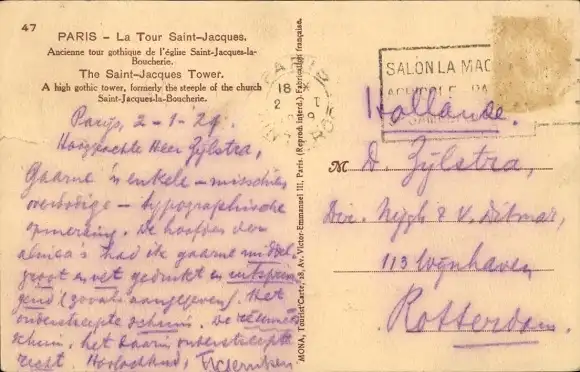 47
PARIS - La Tour Saint-Jacques.
Ancienne tour gothique de l'église Saint-Jacques-la-
Boucherie.
The Saint-Jacques Tower.
A high gothic tower, formerly the steeple of the church
Saint-Jacques-la-Boucherie.
Parijs, 2-1-29.
Hooggeachte Heer Zijlstra,
Gaarne 'n enkele - misschien
overbodige - typographische
opmerking. De hoofden der
alinea's had ik gaarne middel
groot en vet gedrukt en
gend (zooals aangegeven). Het
onderstreepte schuin. De
schuin, het daarin onderstreepte
recht. Hoogachtend,
MONA, Tourist'Carte, 28, Av. Victor-Emmanuel III, Paris. (Reprod. interd.) Fabrication française.
18
SALON LA MAC
AGRICOLE PA
Hollande.
M D. Zijlstra,
Dir. Nijgh & v. Ditmar,
113 Wijnhaven
Rotterdam.